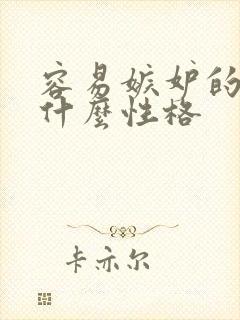 容易嫉妒的
什麼性格
卡亦尔